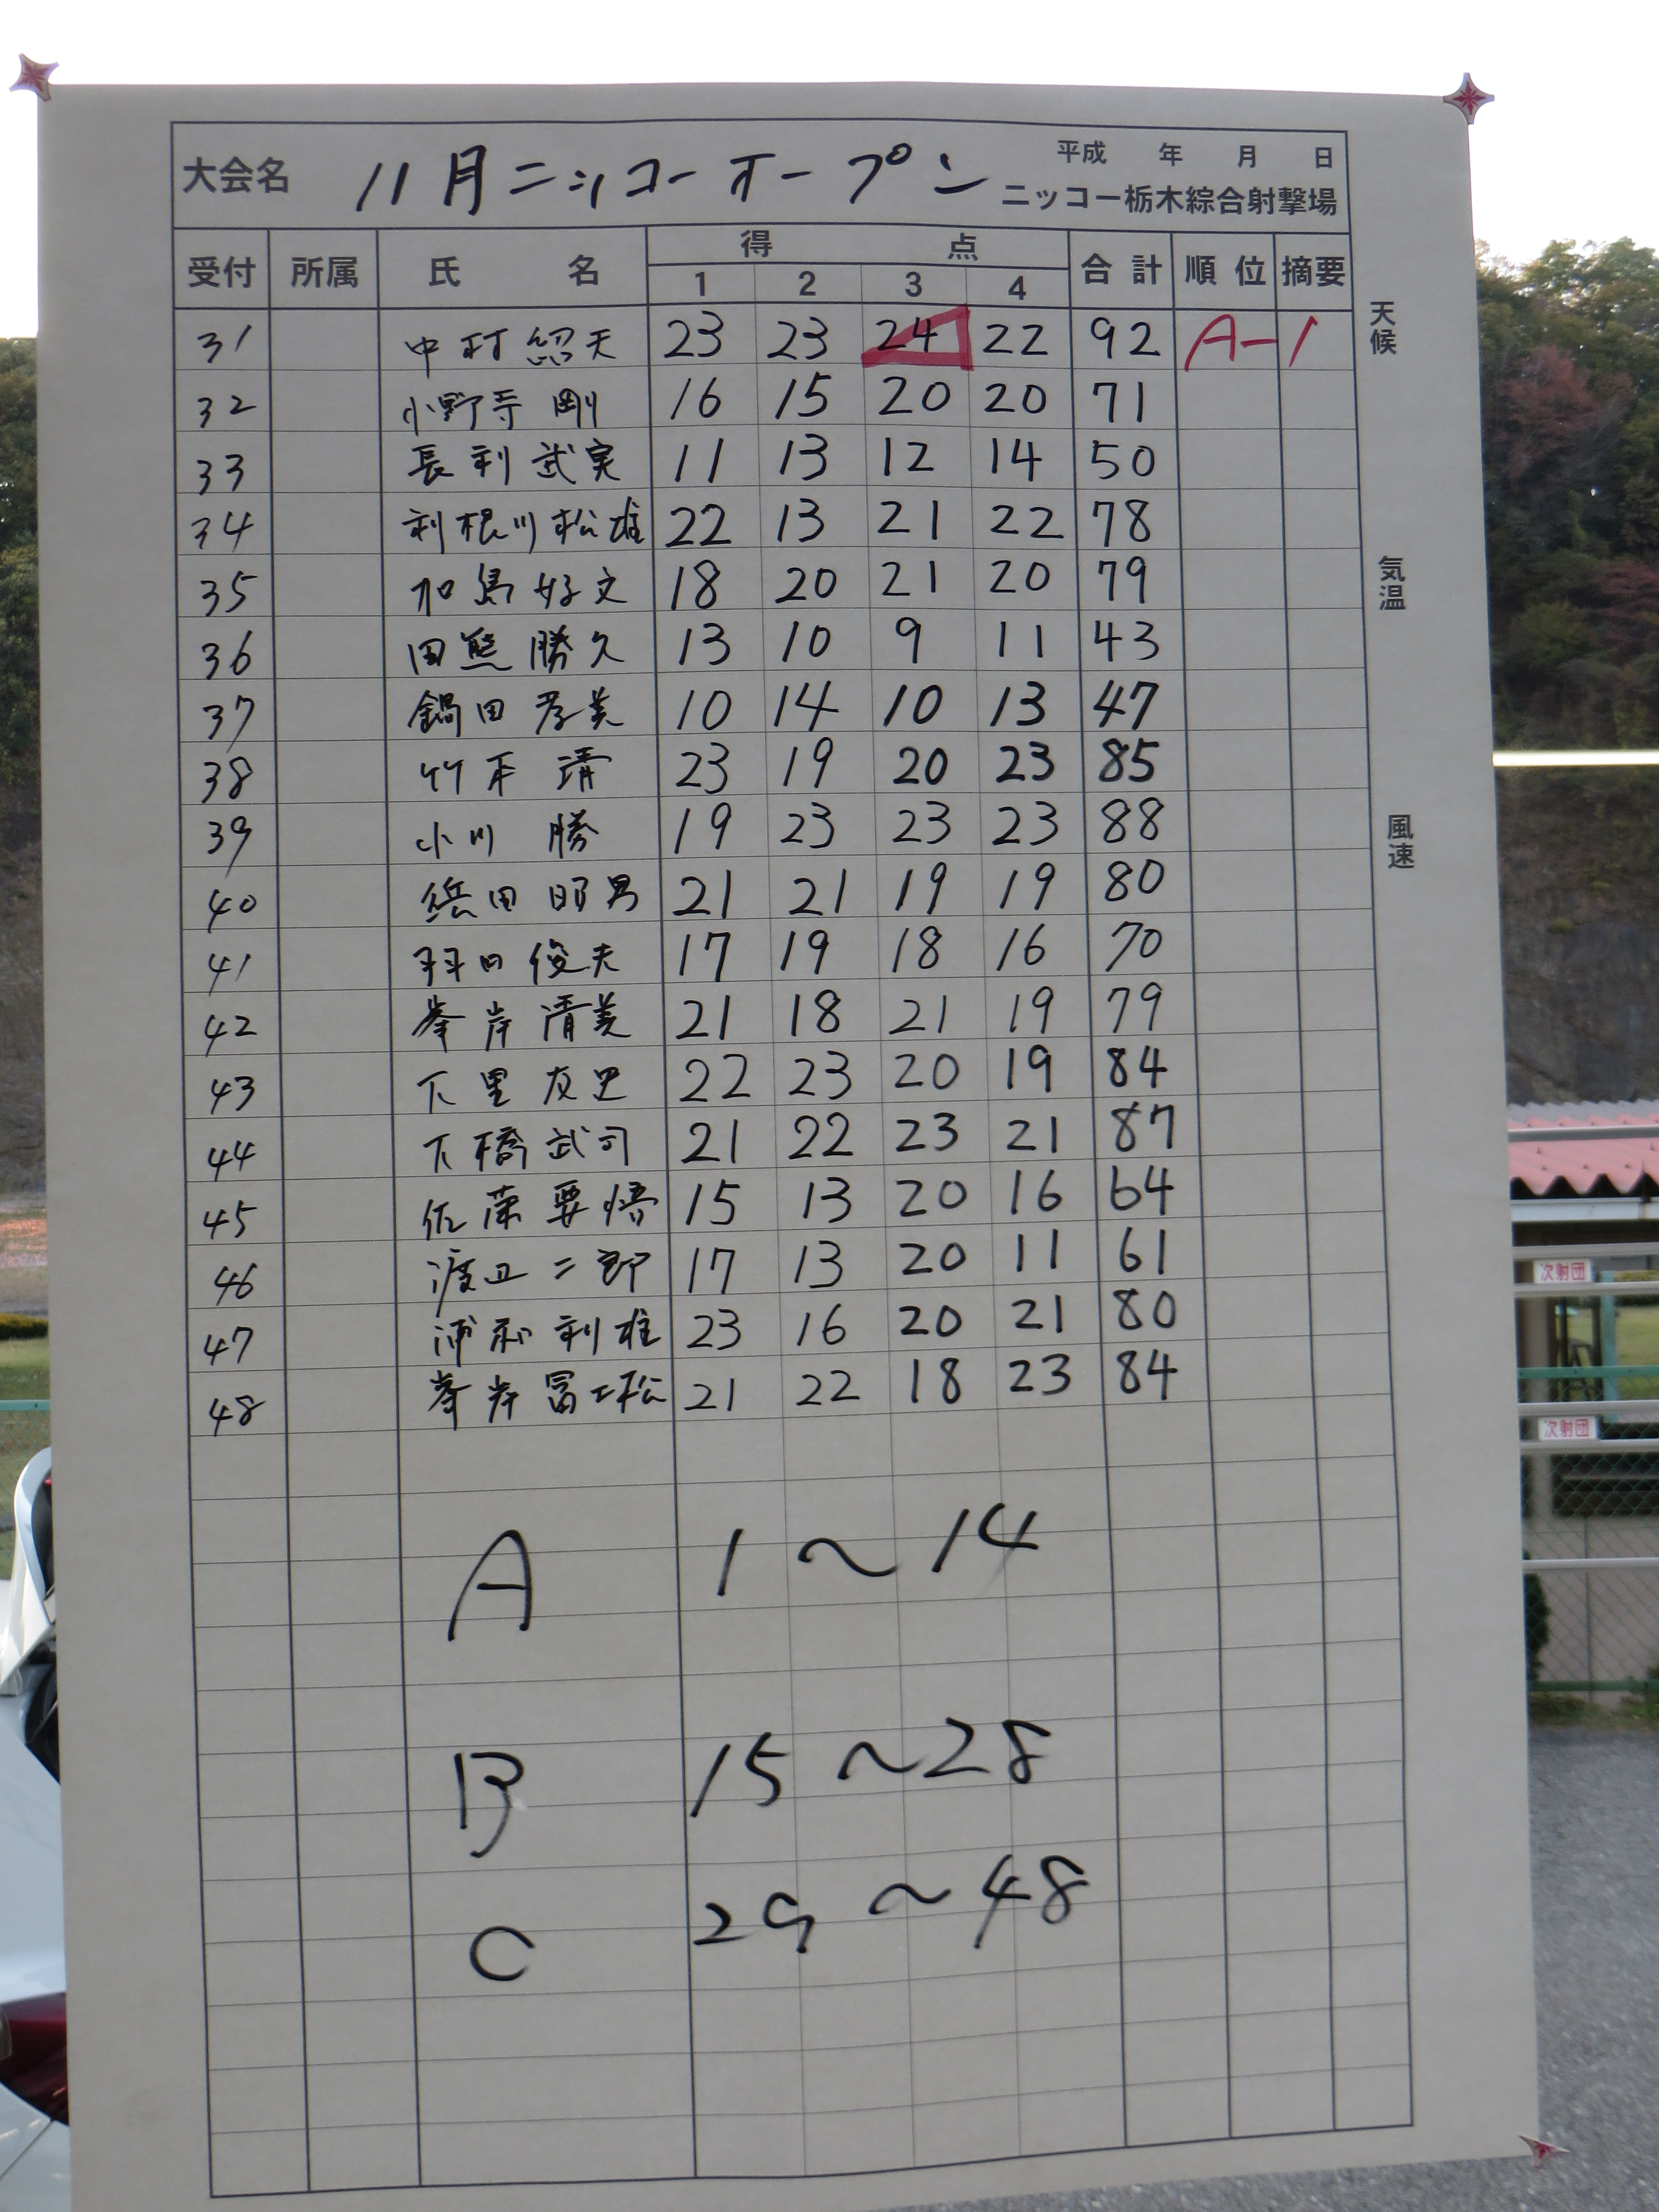 大会名 11月ニッコーオープン 平成 年 月 日
ニッコー栃木綜合射撃場
受付 所属 氏名 得点 合計 順位 摘要
1 2 3 4
31 中村紹天 23 23 24 22 92 A-1
32 小野寺剛 16 15 20 20 71
33 長利武実 11 13 12 14 50
34 利根川松雄 22 13 21 22 78
35 加島好文 18 20 21 20 79
36 田熊勝久 13 10 9 11 43
37 鍋田孝美 10 14 10 13 47
38 竹本清 23 19 20 23 85
39 小川勝 19 23 23 23 88
40 浜田昭男 21 21 19 19 80
41 羽田俊夫 17 19 18 16 70
42 峯岸清美 21 18 21 19 79
43 下里友史 22 23 20 19 84
44 下橋武司 21 22 23 21 87
45 佐藤要悟 15 13 20 16 64
46 渡辺二郎 17 13 20 11 61
47 浦和利雄 23 16 20 21 80
48 峯岸冨士松 21 22 18 23 84
A 1～14
B 15～28
C 29～48
天候
気温
風速
次射団
次射団